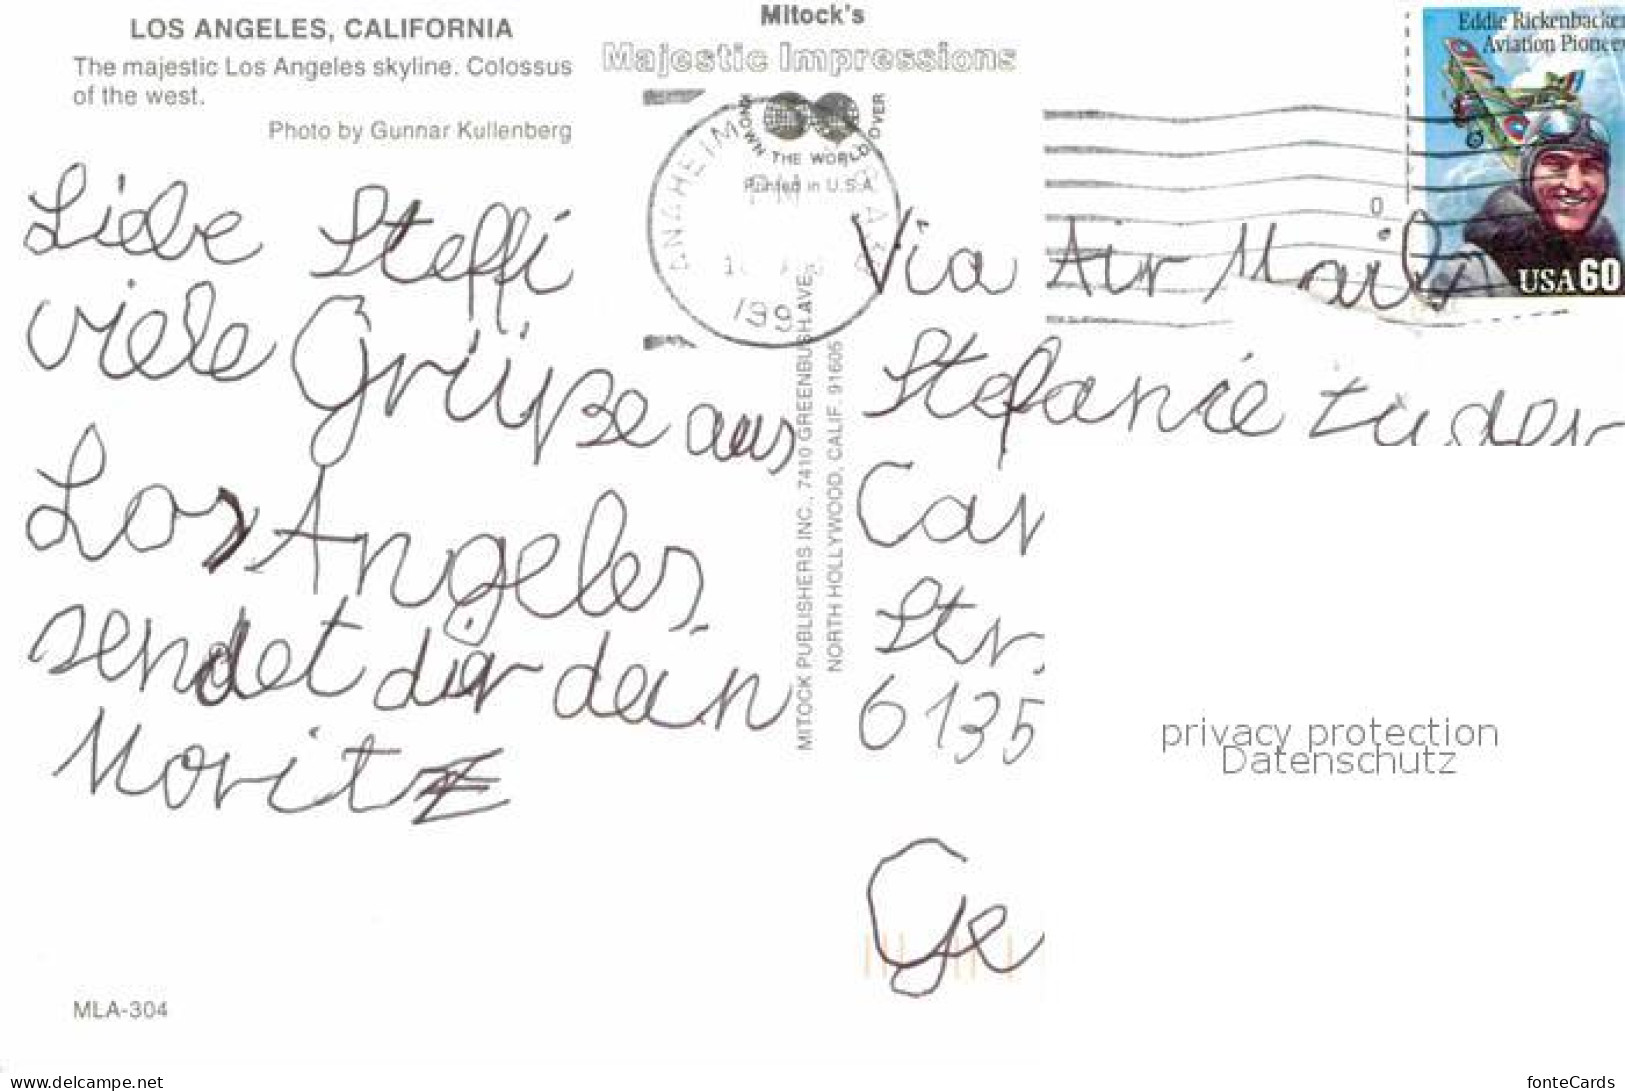 LOS ANGELES, CALIFORNIA
The majestic Los Angeles skyline. Colossus
of the west.
Photo by Gunnar Kullenberg
Mitock's
Majestic Impressions
KNOWN THE WORLD OVER
Printed in U.S.A.
ANAHEIM
PM
199
Eddie Rickenbacker
Aviation Pioneer
USA60
Liebe Steffi
viele Grüße aus
Los Angeles,
sendet dir dein
Moritz
MITOCK PUBLISHERS INC., 7410 GREENBUSH AVE.
NORTH HOLLYWOOD, CALIF. 91605
Via Air Mail
Stefanie
Car
Str.
6135
Ge
privacy protection
Datenschutz
MLA-304
www.delcampe.net
fonteCards